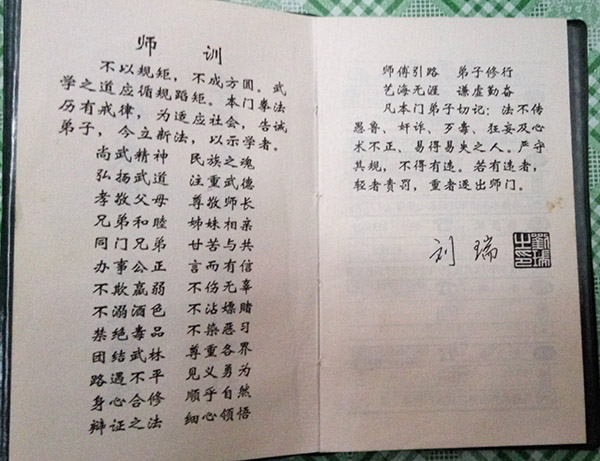 师 训
不以规矩，不成方圆。武
学之道应循规蹈矩。本门拳法
历有戒律，为适应社会，告诫
弟子，今立新法，以示学者。
尚武精神 民族之魂
弘扬武道 注重武德
孝敬父母 尊敬师长
兄弟和睦 姊妹相亲
同门兄弟 甘苦与共
办事公正 言而有信
不欺赢弱 不伤无辜
不溺酒色 不沾嫖赌
禁绝毒品 不染恶习
团结武林 尊重各界
路遇不平 见义勇为
身心合修 顺乎自然
辩证之法 细心领悟
师傅引路 弟子修行
艺海无涯 谦虚勤奋
凡本门弟子切记：法不传
愚鲁、奸诈、歹毒、狂妄及心
术不正、易得易失之人。严守
其规，不得有违。若有违者，
轻者责罚，重者逐出师门。
刘瑞
劉瑞之印